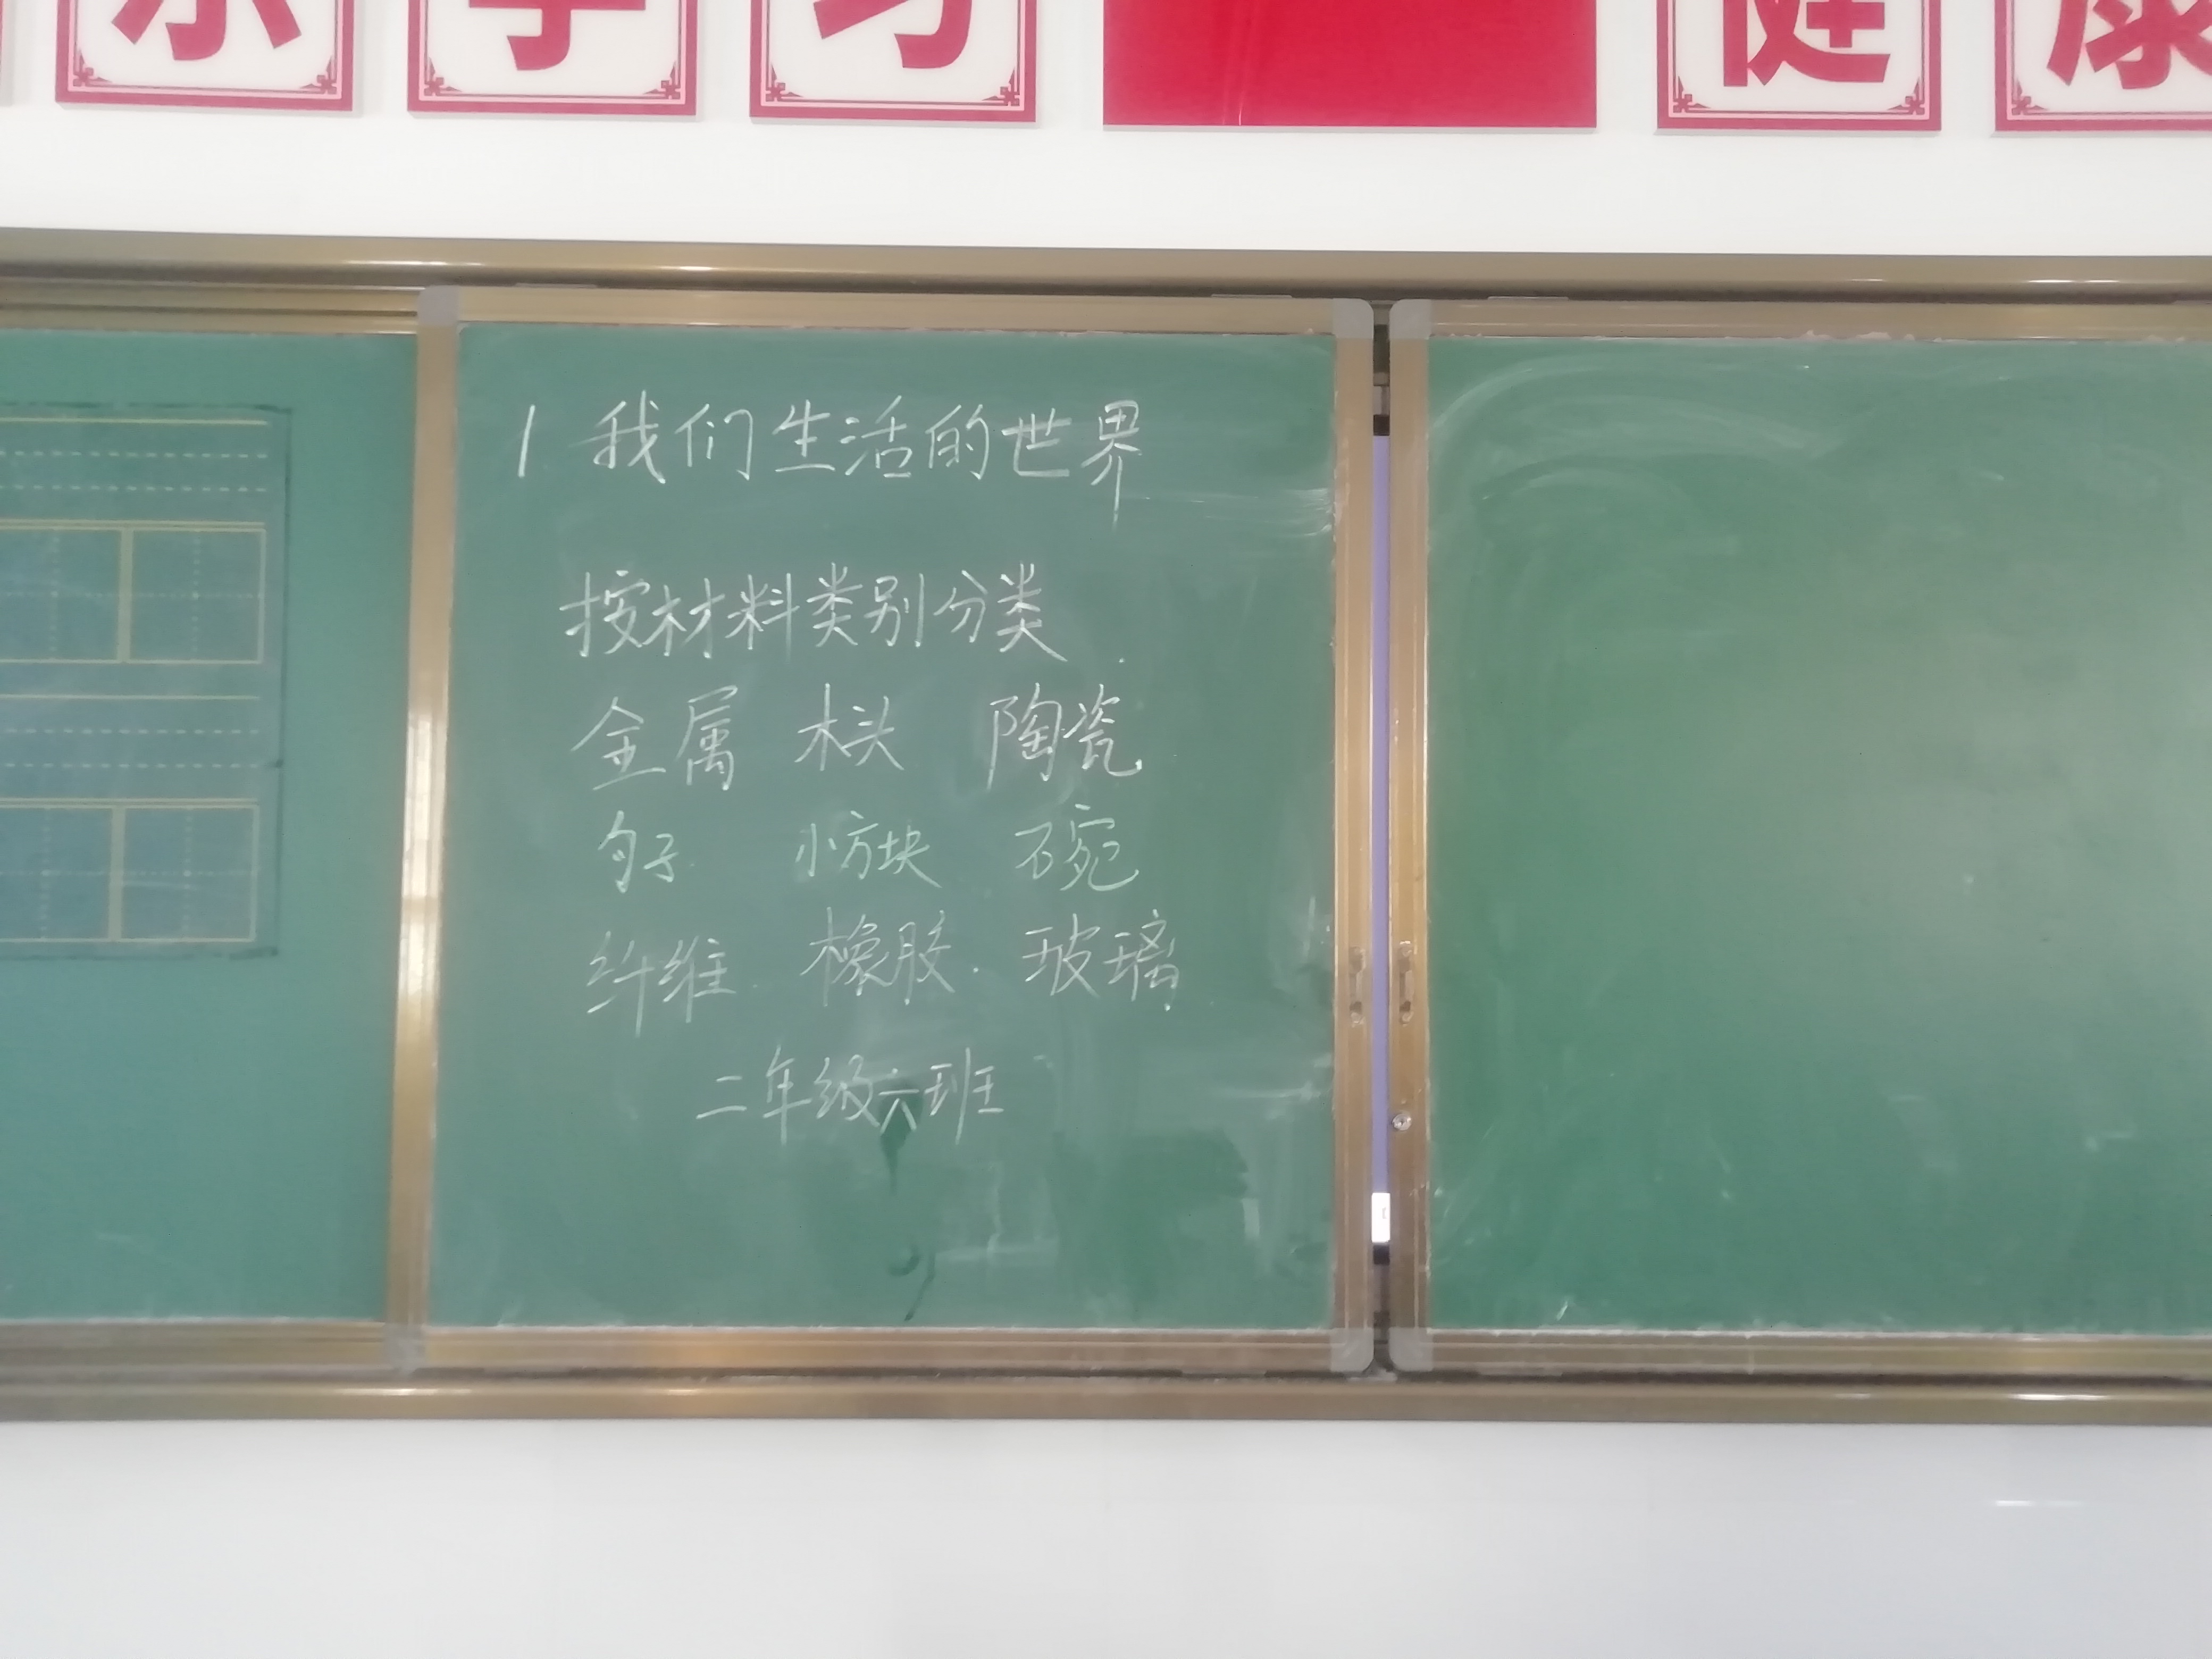 学习 健康
1 我们生活的世界
按材料类别分类
金属 木头 陶瓷
勺子 小方块 碗
纤维 橡胶 玻璃
二年级六班